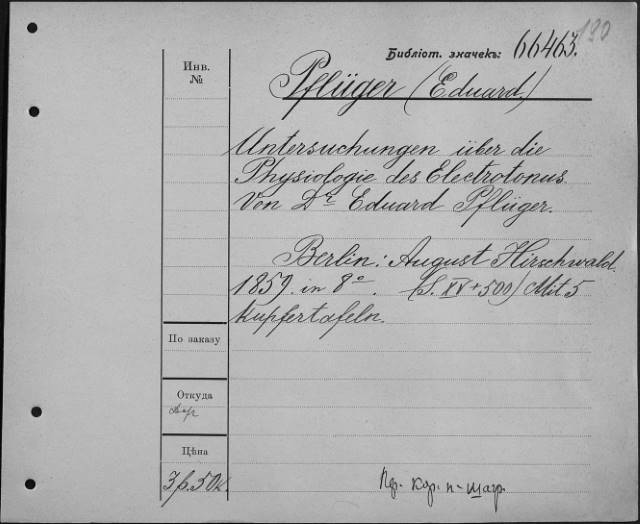 190
Библіот. значекъ: 66463.
Инв.
№
Pflüger (Eduard.)
Untersuchungen über die
Physiologie des Electrotonus.
Von Dr Eduard Pflüger.
Berlin: August Hirschwald.
1859. in 8o. (S. XV + 500) Mit 5
Kupfertafeln.
По заказу
Откуда
Цѣна
3р. 50к.
Пер. кор. п-шагр.